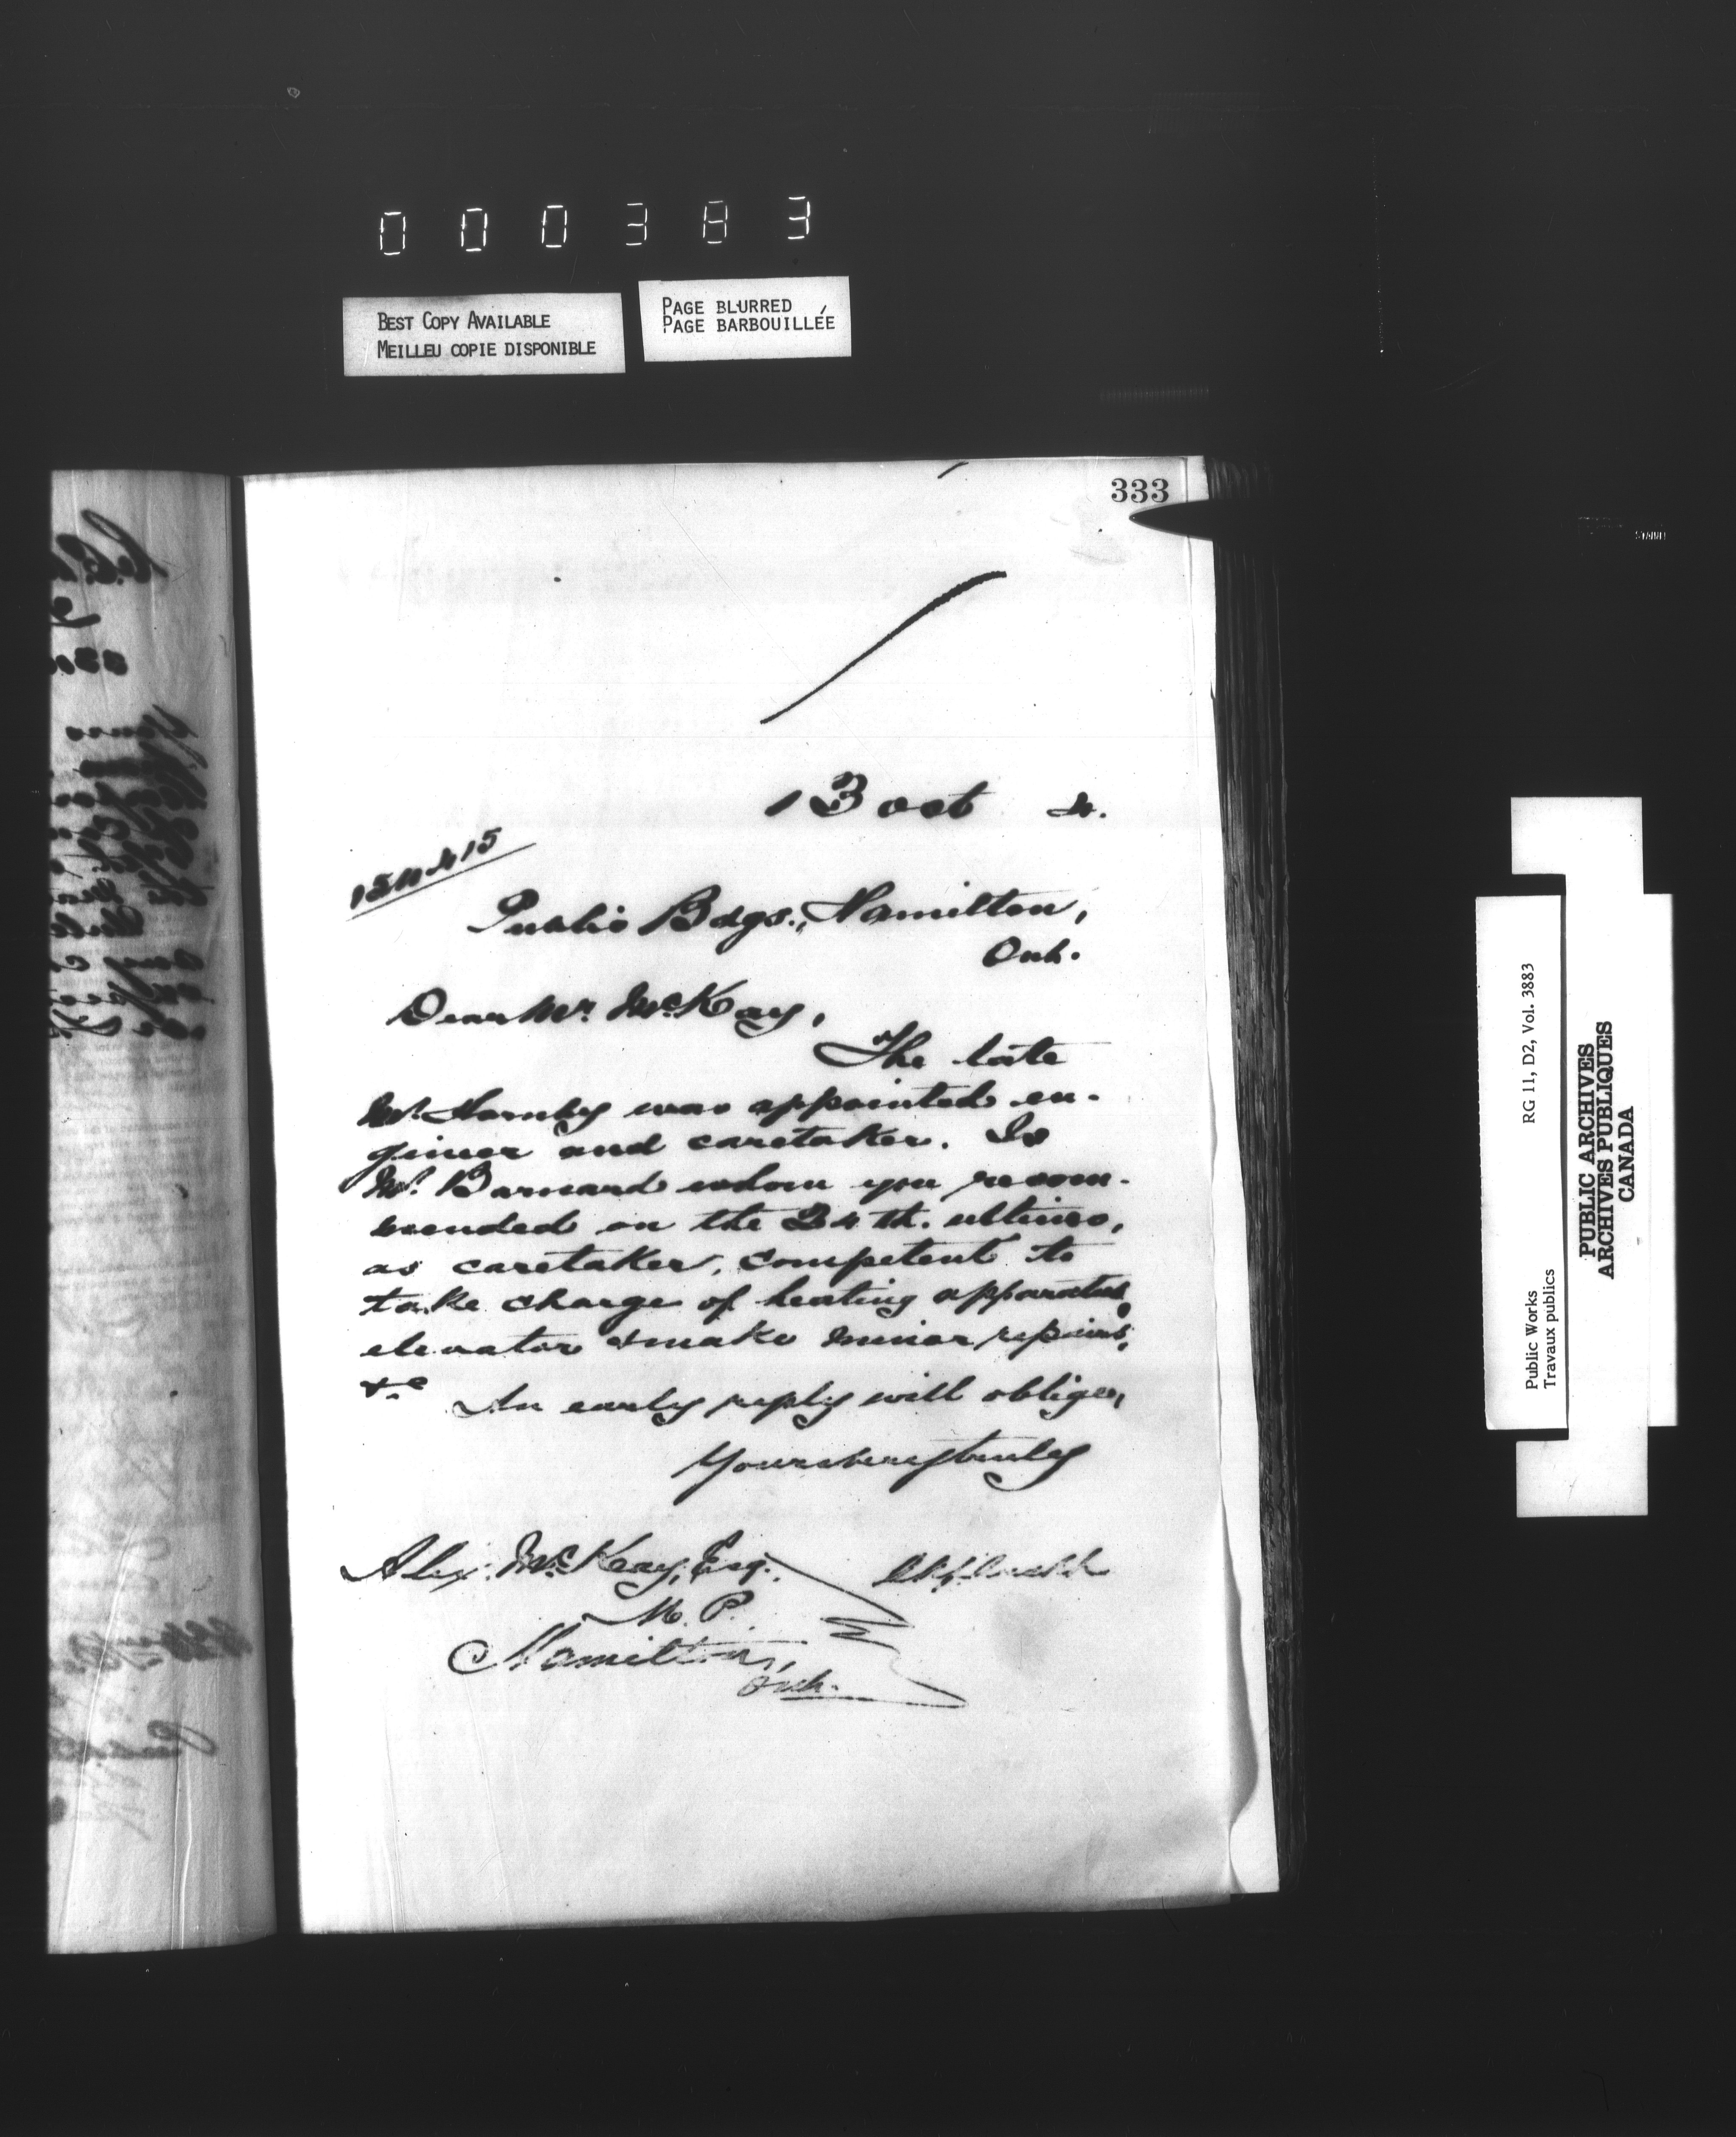 000383
BEST COPY AVAILABLE
MEILLEU COPIE DISPONIBLE
PAGE BLURRED
PAGE BARBOUILLÉE
333
13 Oct 4.
Public Bdgs., Hamilton,
Ont.
Dear Mr. McKay,
The late
Mr. Hornby was appointed en-
gineer and caretaker. Is
Mr. Barnard whom you recom-
mended on the 24th. ultimo,
as caretaker, competent to
take charge of heating apparatus,
elevator & make minor repairs,
&c
An early reply will oblige,
Yours very truly
Alex. McKay, Esq.
M. P.
Hamilton,
Ont.
Public Works
Travaux publics
RG 11, D2, Vol. 3883
PUBLIC ARCHIVES
ARCHIVES PUBLIQUES
CANADA